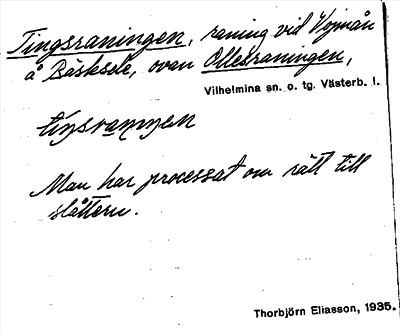 Tingsraningen, raning vid Vojmån
å Bäsksele, ovan Ollesraningen,
Vilhelmina sn. o. tg. Västerb. l.
Man har processat om rätt till
slåttern.
Thorbjörn Eliasson, 1935.